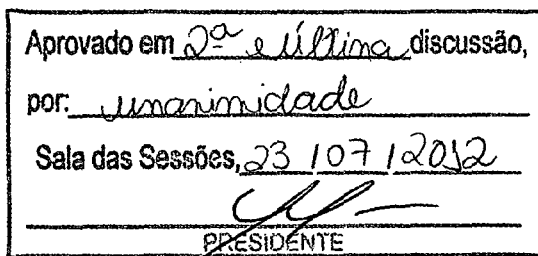 Aprovado em 2ª e última discussão,
por: unanimidade
Sala das Sessões, 23 / 07 / 2012
PRESIDENTE